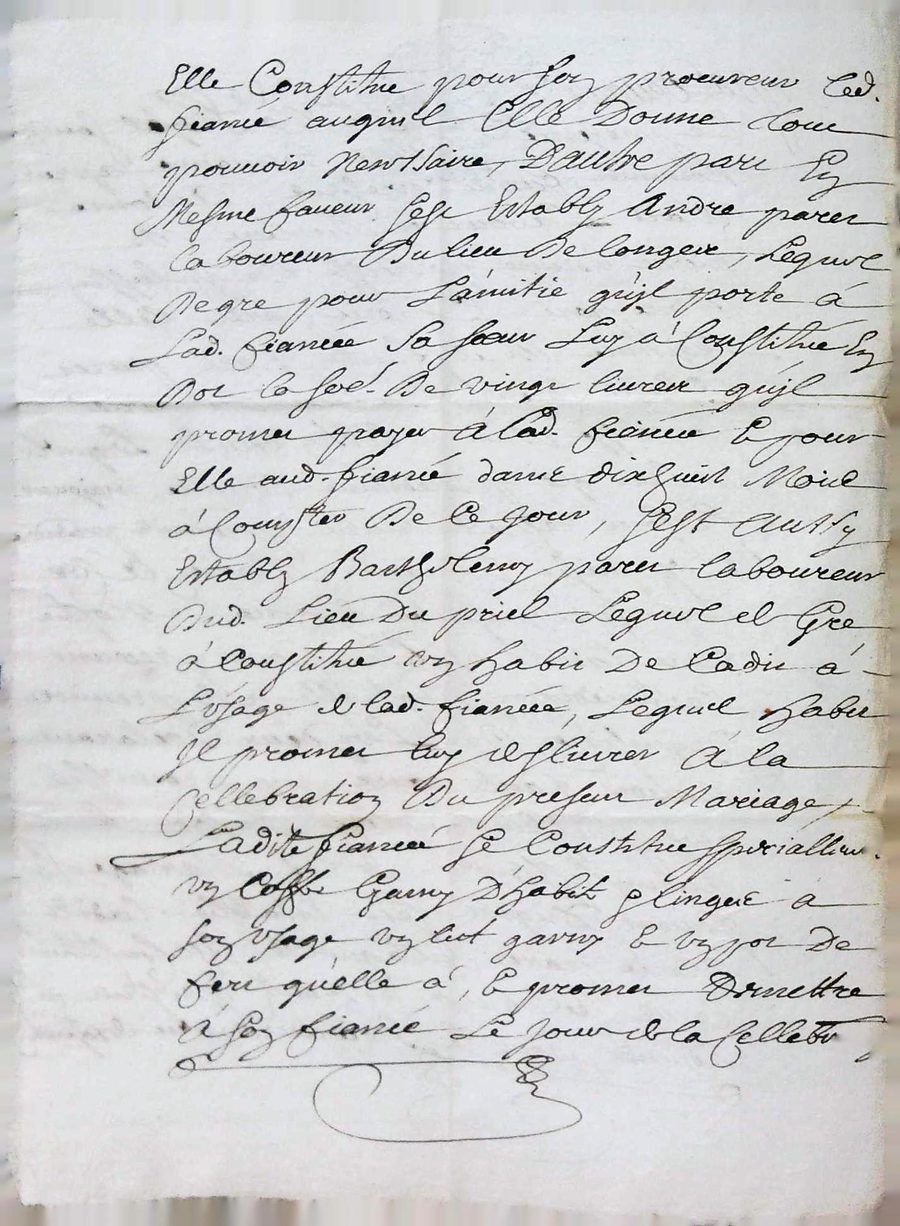 Elle Constitue pour son procureur led.
fiancé auquel Elle Donne tout
pouvoir Necessaire, D'autre part En
Mesme faveur s'est Estably Andre paret
laboureur Du lieu De longere, Lequel
De gre pour L'amitie qu'il porte á
Lad. fiancée Sa sœur Luy á Constitué En
Dot la so.e De vingt livres qu'il
promet payer á lad. fiancée Et pour
Elle aud. fiancé dans dixhuit Mois
á Compter De Ce jour, s'est aussy
Estably Barthelemy paret laboureur
Dud. Lieu Du priel Lequel de Gre
á Constitué un habit De Cadis á
L'usage de lad. fiancée, Lequel habit
Il promet luy deslivrer á la
Cellebration Du present Mariage,
Ladite fiancée se Constitue speciallem.
un Coffre Garny D'habits & linges a
son usage un lict garny Et un pot De
fert qu'elle á, Et promet Remettre
á son fiancé Le jour de la Cellebr